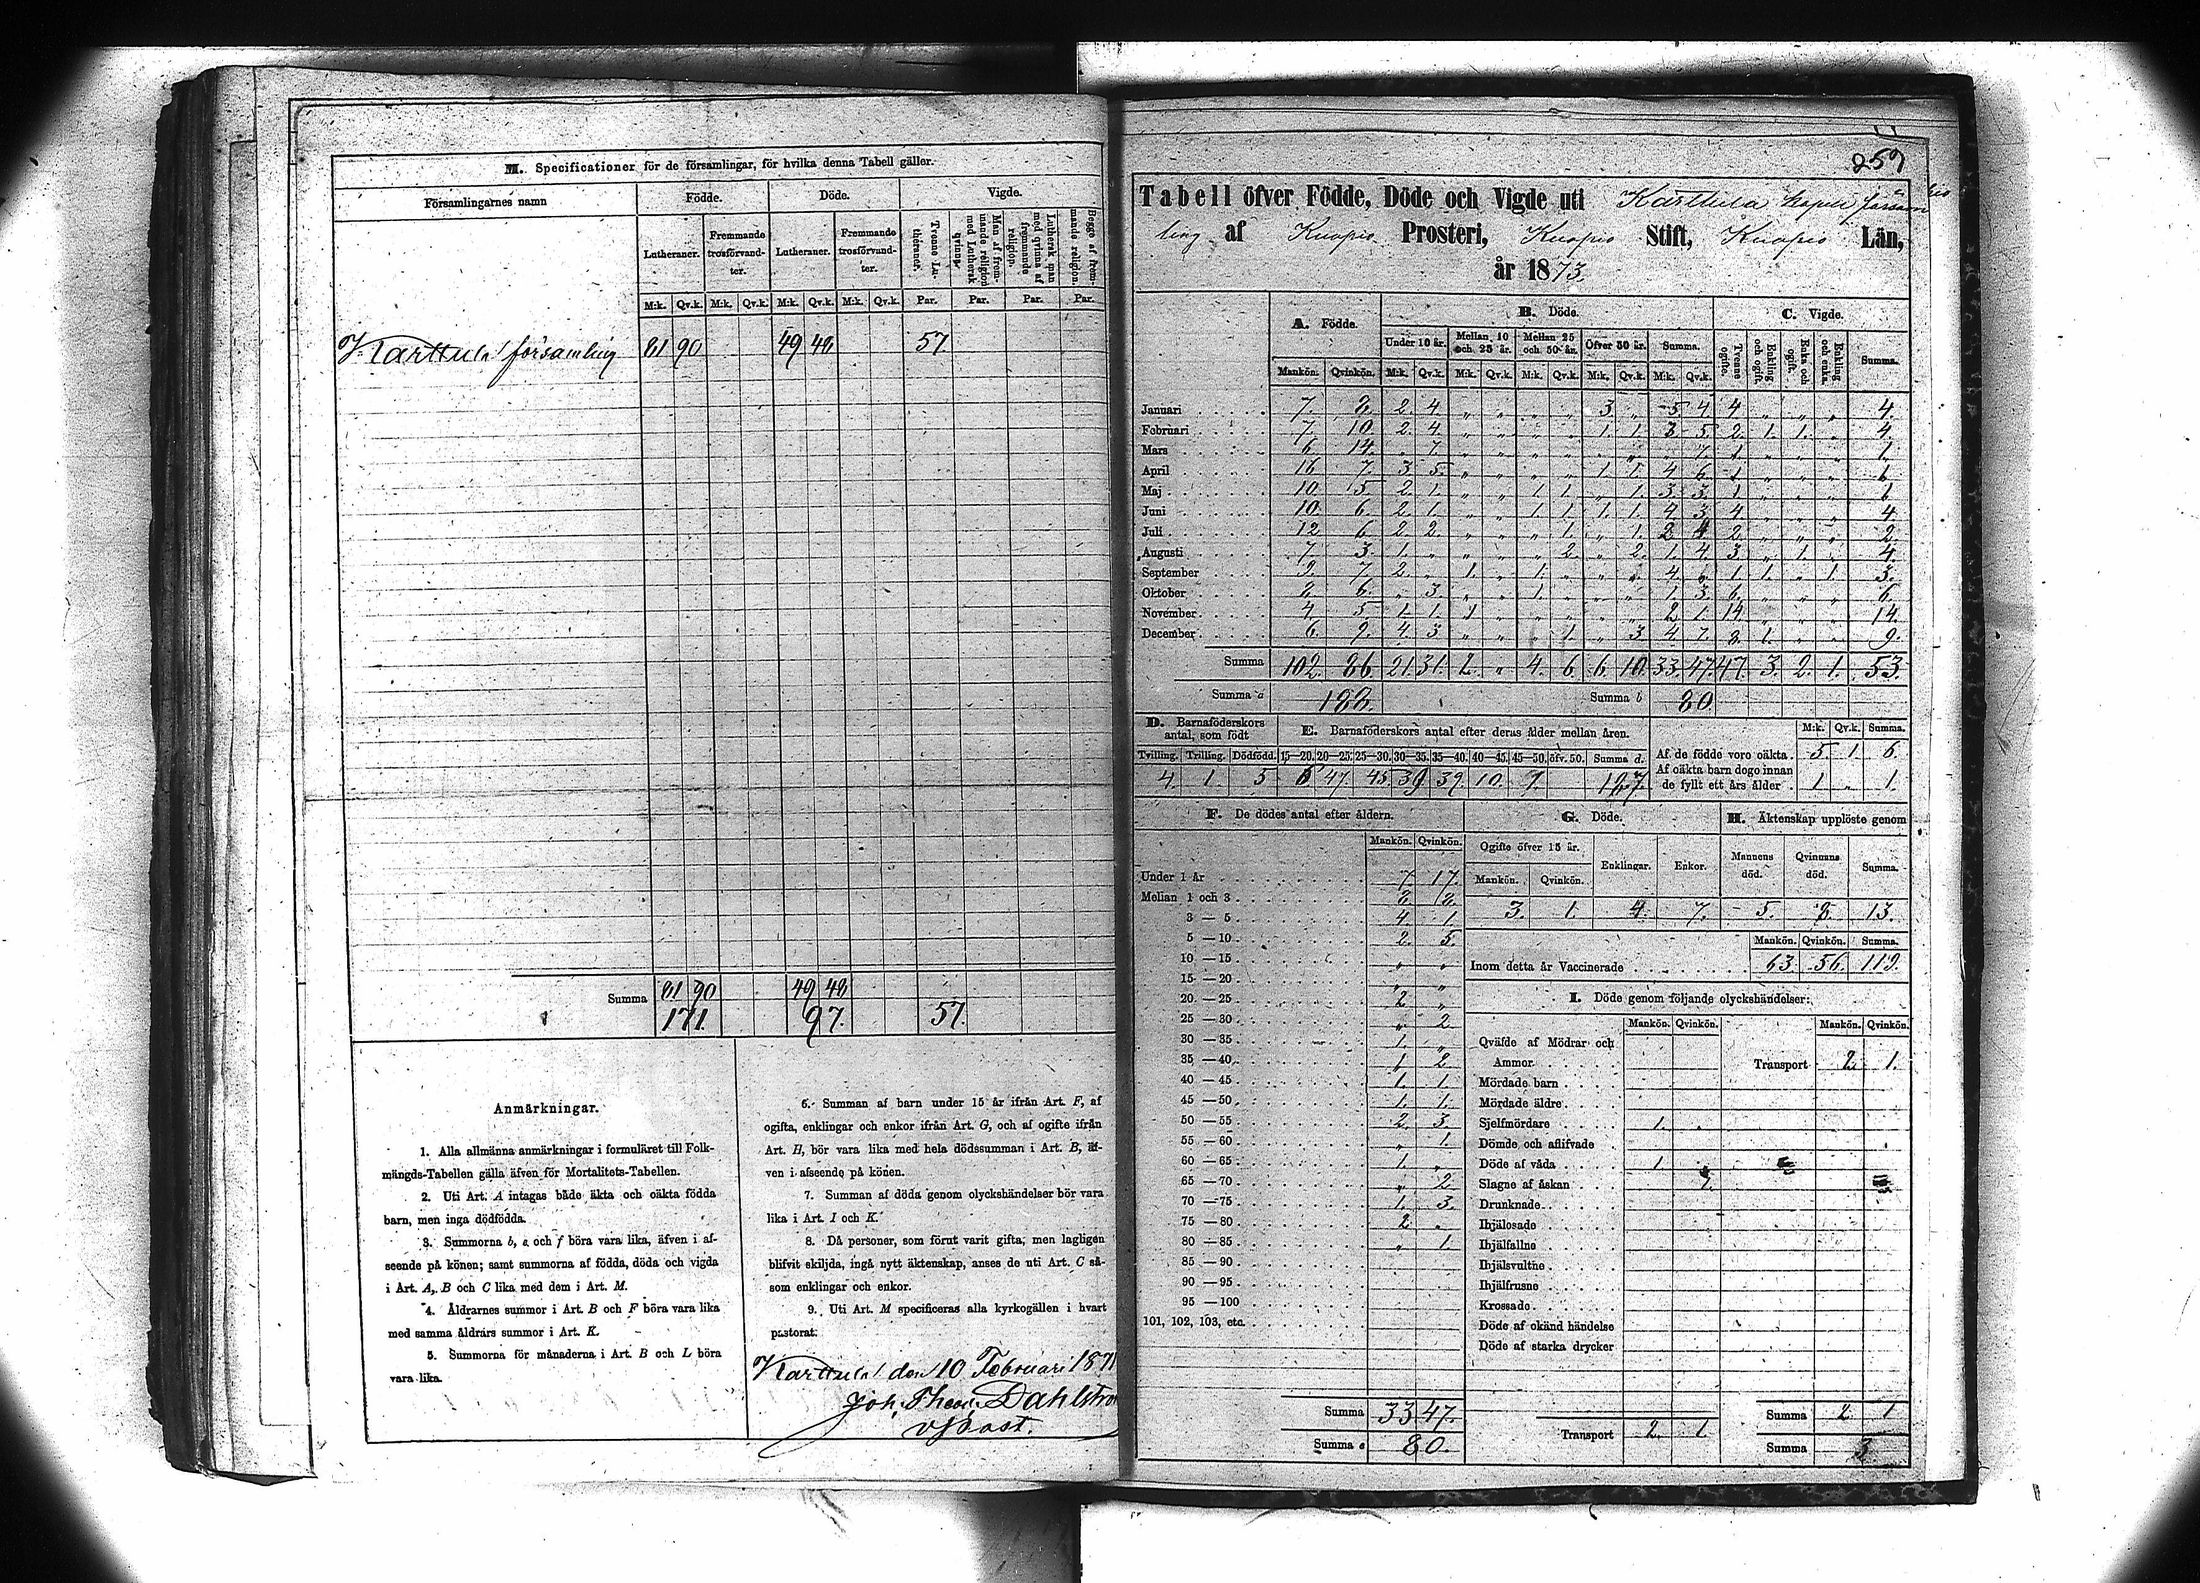 M. Specificationer för de församlingar, för hvilka denna Tabell gäller.
Församlingarnes namn
Födde. Döde. Vigde.
Lutheraner. Fremmande trosförvandter. Lutheraner. Fremmande trosförvandter. Trenne Lutheraner. Man af fremmande religion med Luthersk qvinna. Luthersk man med qvinna af fremmande religion. Begge af fremmande religion.
M:k. Qv.k. M:k. Qv.k. M:k. Qv.k. M:k. Qv.k. Par. Par. Par. Par.
Karttula församling 81 90 49 48 57.
Summa 81 90 49 48
171 97. 57.
Anmärkningar.
1. Alla allmänna anmärkningar i formuläret till Folk-
mängds-Tabellen gälla äfven för Mortalitets-Tabellen.
2. Uti Art. A intagas både äkta och oäkta födda
barn, men inga dödfödda.
3. Summorna b, e och f böra vara lika, äfven i af-
seende på könen; samt summorna af födda, döda och vigda
i Art. A, B och C lika med dem i Art. M.
4. Åldrarnes summor i Art. B och F böra vara lika
med samma åldrars summor i Art. K.
5. Summorna för månaderna i Art. B och L böra
vara lika.
6. Summan af barn under 15 år ifrån Art. F, af
ogifta, enklingar och enkor ifrån Art. G, och af ogifte ifrån
Art. H, bör vara lika med hela dödssumman i Art. B, äf-
ven i afseende på könen.
7. Summan af döda genom olyckshändelser bör vara
lika i Art. I och K.
8. Då personer, som förut varit gifta, men lagligen
blifvit skiljda, ingå nytt äktenskap, anses de uti Art. C så-
som enklingar och enkor.
9. Uti Art. M specificeras alla kyrkogällen i hvart
pastorat.
Karttula den 10 Februari 187
Joh. Theod. Dahlström
v Past.
259
Tabell öfver Födde, Döde och Vigde uti Karttula kapell församl
ling af Kuopio Prosteri, Kuopio Stift, Kuopio Län,
år 1873.
A. Födde. B. Döde. C. Vigde.
Under 10 år. Mellan 10 och 25 år. Mellan 25 och 50 år. Öfver 50 år. Summa. Trenne ogifte. Enkling och ogift. Enka och ogift. Enkling och enka. Summa.
Mankön. Qvinkön. M:k. Qv.k. M:k. Qv.k. M:k. Qv.k. M:k. Qv.k. M:k. Qv.k.
Januari 7. 8. 2. 4. „ „ „ „ 3. „ 5 4 4 „ „ „ 4.
Februari 7. 10. 2. 4 „ „ „ „ 1. 1. 3 5. 2. 1. 1. „ 4.
Mars 6 14. „ 7 „ „ „ „ „ „ „ 7. 1 „ „ „ 1.
April 16 7. 3. 5. „ „ „ „ 1 1. 4 6 1 „ „ „ 1.
Maj 10. 5. 2. 1. „ „ 1. 1. „ 1. 3. 3. 1 „ „ „ 1.
Juni 10. 6. 2. 1. „ „ 1. 1. 1. 1. 4 3. 4 „ „ „ 4
Juli 12 6 2. 2. „ „ „ 1. „ 1. 2 4 2. „ „ „ 2.
Augusti 7. 3. 1. „ „ „ „ 2. „ 2. 1. 4. 3. „ 1. „ 4.
September 9. 7. 2. „ 1. „ 1. „ „ „ 4 „ 1. 1. „ 1. 3.
Oktober 8 6. „ 3. „ „ 1. „ „ „ 1. 3. 6. „ „ „ 6.
November 4. 5 1. 1. 1 2 1. 14. „ „ „ 14.
December 6. 9. 4. 3 „ „ „ 1. „ 3 4. 7. 8. 1. „ „ 9.
Summa 102. 86. 21. 31. 2. „ 4. 6. 6. 10. 33. 47. 47. 3. 2. 1. 53.
Summa a 188. Summa b 80.
D. Barnaföderskors antal, som födt
Tvilling. Trilling. Dödfödd.
4. 1. 5
E. Barnaföderskors antal efter deras ålder mellan åren.
15—20. 20—25. 25—30. 30—35. 35—40. 40—45. 45—50. öfv. 50. Summa d.
47 45 39 39. 10. 7. 187.
M:k. Qv.k. Summa.
Af de födde voro oäkta. 5. 1. 6.
Af oäkta barn dogo innan
de fyllt ett års ålder 1 „ 1.
F. De dödes antal efter åldern.
Mankön. Qvinkön.
Under 1 år 7. 17.
Mellan 1 och 3 8 8.
3 — 5 4 1.
5 — 10 2. 5.
10 — 15 „ „
15 — 20 „ „
20 — 25 2 „
25 — 30 „ 2.
30 — 35 1. „
35 — 40 1 2
40 — 45 1. 1.
45 — 50 1. 1.
50 — 55 2. 3.
55 — 60 „ 1.
60 — 65 1. „
65 — 70 „ 2
70 — 75 1. 3.
75 — 80 2 „
80 — 85 „ 1.
85 — 90
90 — 95
95 — 100
101, 102, 103, etc.
Summa 33 47.
Summa e 80.
G. Döde.
Ogifte öfver 15 år. Enklingar. Enkor.
Mankön. Qvinkön.
3. 1. 4. 7.
H. Äktenskap upplöste genom
Mannens död. Qvinnans död. Summa.
5. 8. 13.
Mankön. Qvinkön. Summa.
Inom detta år Vaccinerade 63. 56. 119.
I. Döde genom följande olyckshändelser:
Mankön. Qvinkön. Mankön. Qvinkön.
Qväfde af Mödrar och
Ammor Transport 2. 1.
Mördade barn
Mördade äldre
Sjelfmördare 1. „
Dömde och aflifvade
Döde af våda 1
Slagne af åskan
Drunknade
Ihjälosade
Ihjälfallne
Ihjälsvultne
Ihjälfrusne
Krossade
Döde af okänd händelse
Döde af starka drycker
Transport 2. 1. Summa 2 1
Summa 3